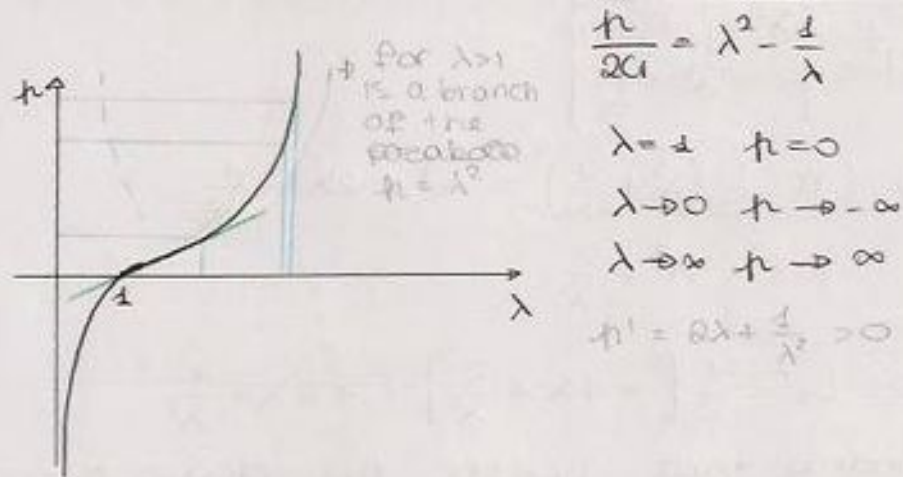 p
for λ>1
is a branch
of the
parabola
p = λ²
1
λ
p/2G = λ² - 1/λ
λ = 1 p = 0
λ → 0 p → -∞
λ → ∞ p → ∞
p' = 2λ + 1/λ² > 0